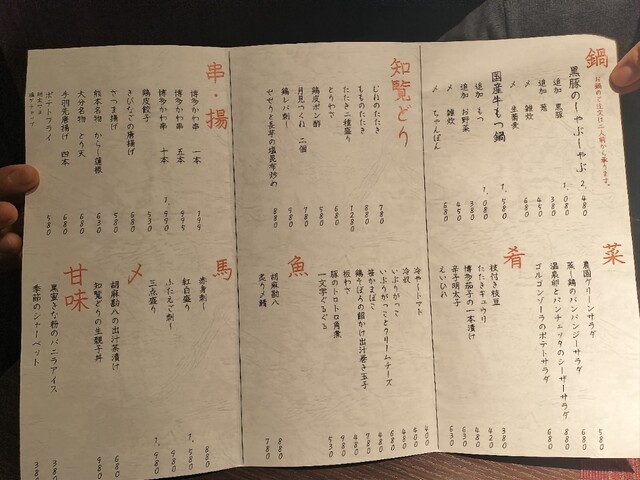 鍋
お鍋のご注文は二人前から承ります。
黒豚のしゃぶしゃぶ 2,480
追加 黒豚 1,080
追加 葱 380
〆 生蕎麦 680
〆 雑炊 480
国産牛もつ鍋 1,580
追加 もつ 1,080
追加 お野菜 480
〆 雑炊 450
〆 ちゃんぽん 680
知覧どり
むねのたたき 780
もものたたき 880
たたき二種盛り 1280
とりわさ 680
鶏皮ポン酢 580
月見つくね 二個 780
鶏レバ刺し 980
せせりと長芋の塩昆布炒め 880
串・揚
博多かわ串 一本 199
博多かわ串 五本 995
博多かわ串 十本 1,990
鶏皮餃子 530
きびなごの唐揚げ 680
さつま揚げ 580
熊本名物 からし蓮根 630
大分名物 とり天 680
手羽先唐揚げ 四本 680
ポテトフライ 580
菜
農園グリーンサラダ 580
蒸し鶏のバンバンジーサラダ 680
温泉卵とパンチェッタのシーザーサラダ 880
ゴルゴンゾーラのポテトサラダ 680
肴
枝付き枝豆 380
たたきキュウリ 420
博多茄子の一本漬け 480
辛子明太子 630
えいひれ 630
冷やしトマト 400
冷奴 400
いぶりがっこ 480
いぶりがっことクリームチーズ 580
笹かまぼこ 480
鶏そぼろの餡かけ出汁巻き玉子 780
板わさ 480
豚のトロトロ角煮 980
一文字ぐるぐる 530
魚
胡麻勘八 880
炙り〆鯖 780
馬
赤身刺し 880
紅白盛り 1,580
ふたえご刺し 980
三点盛り 1,980
〆
胡麻勘八の出汁茶漬け 680
知覧どりの生親子丼 980
甘味
黒蜜きな粉のバニラアイス 380
季節のシャーベット 380